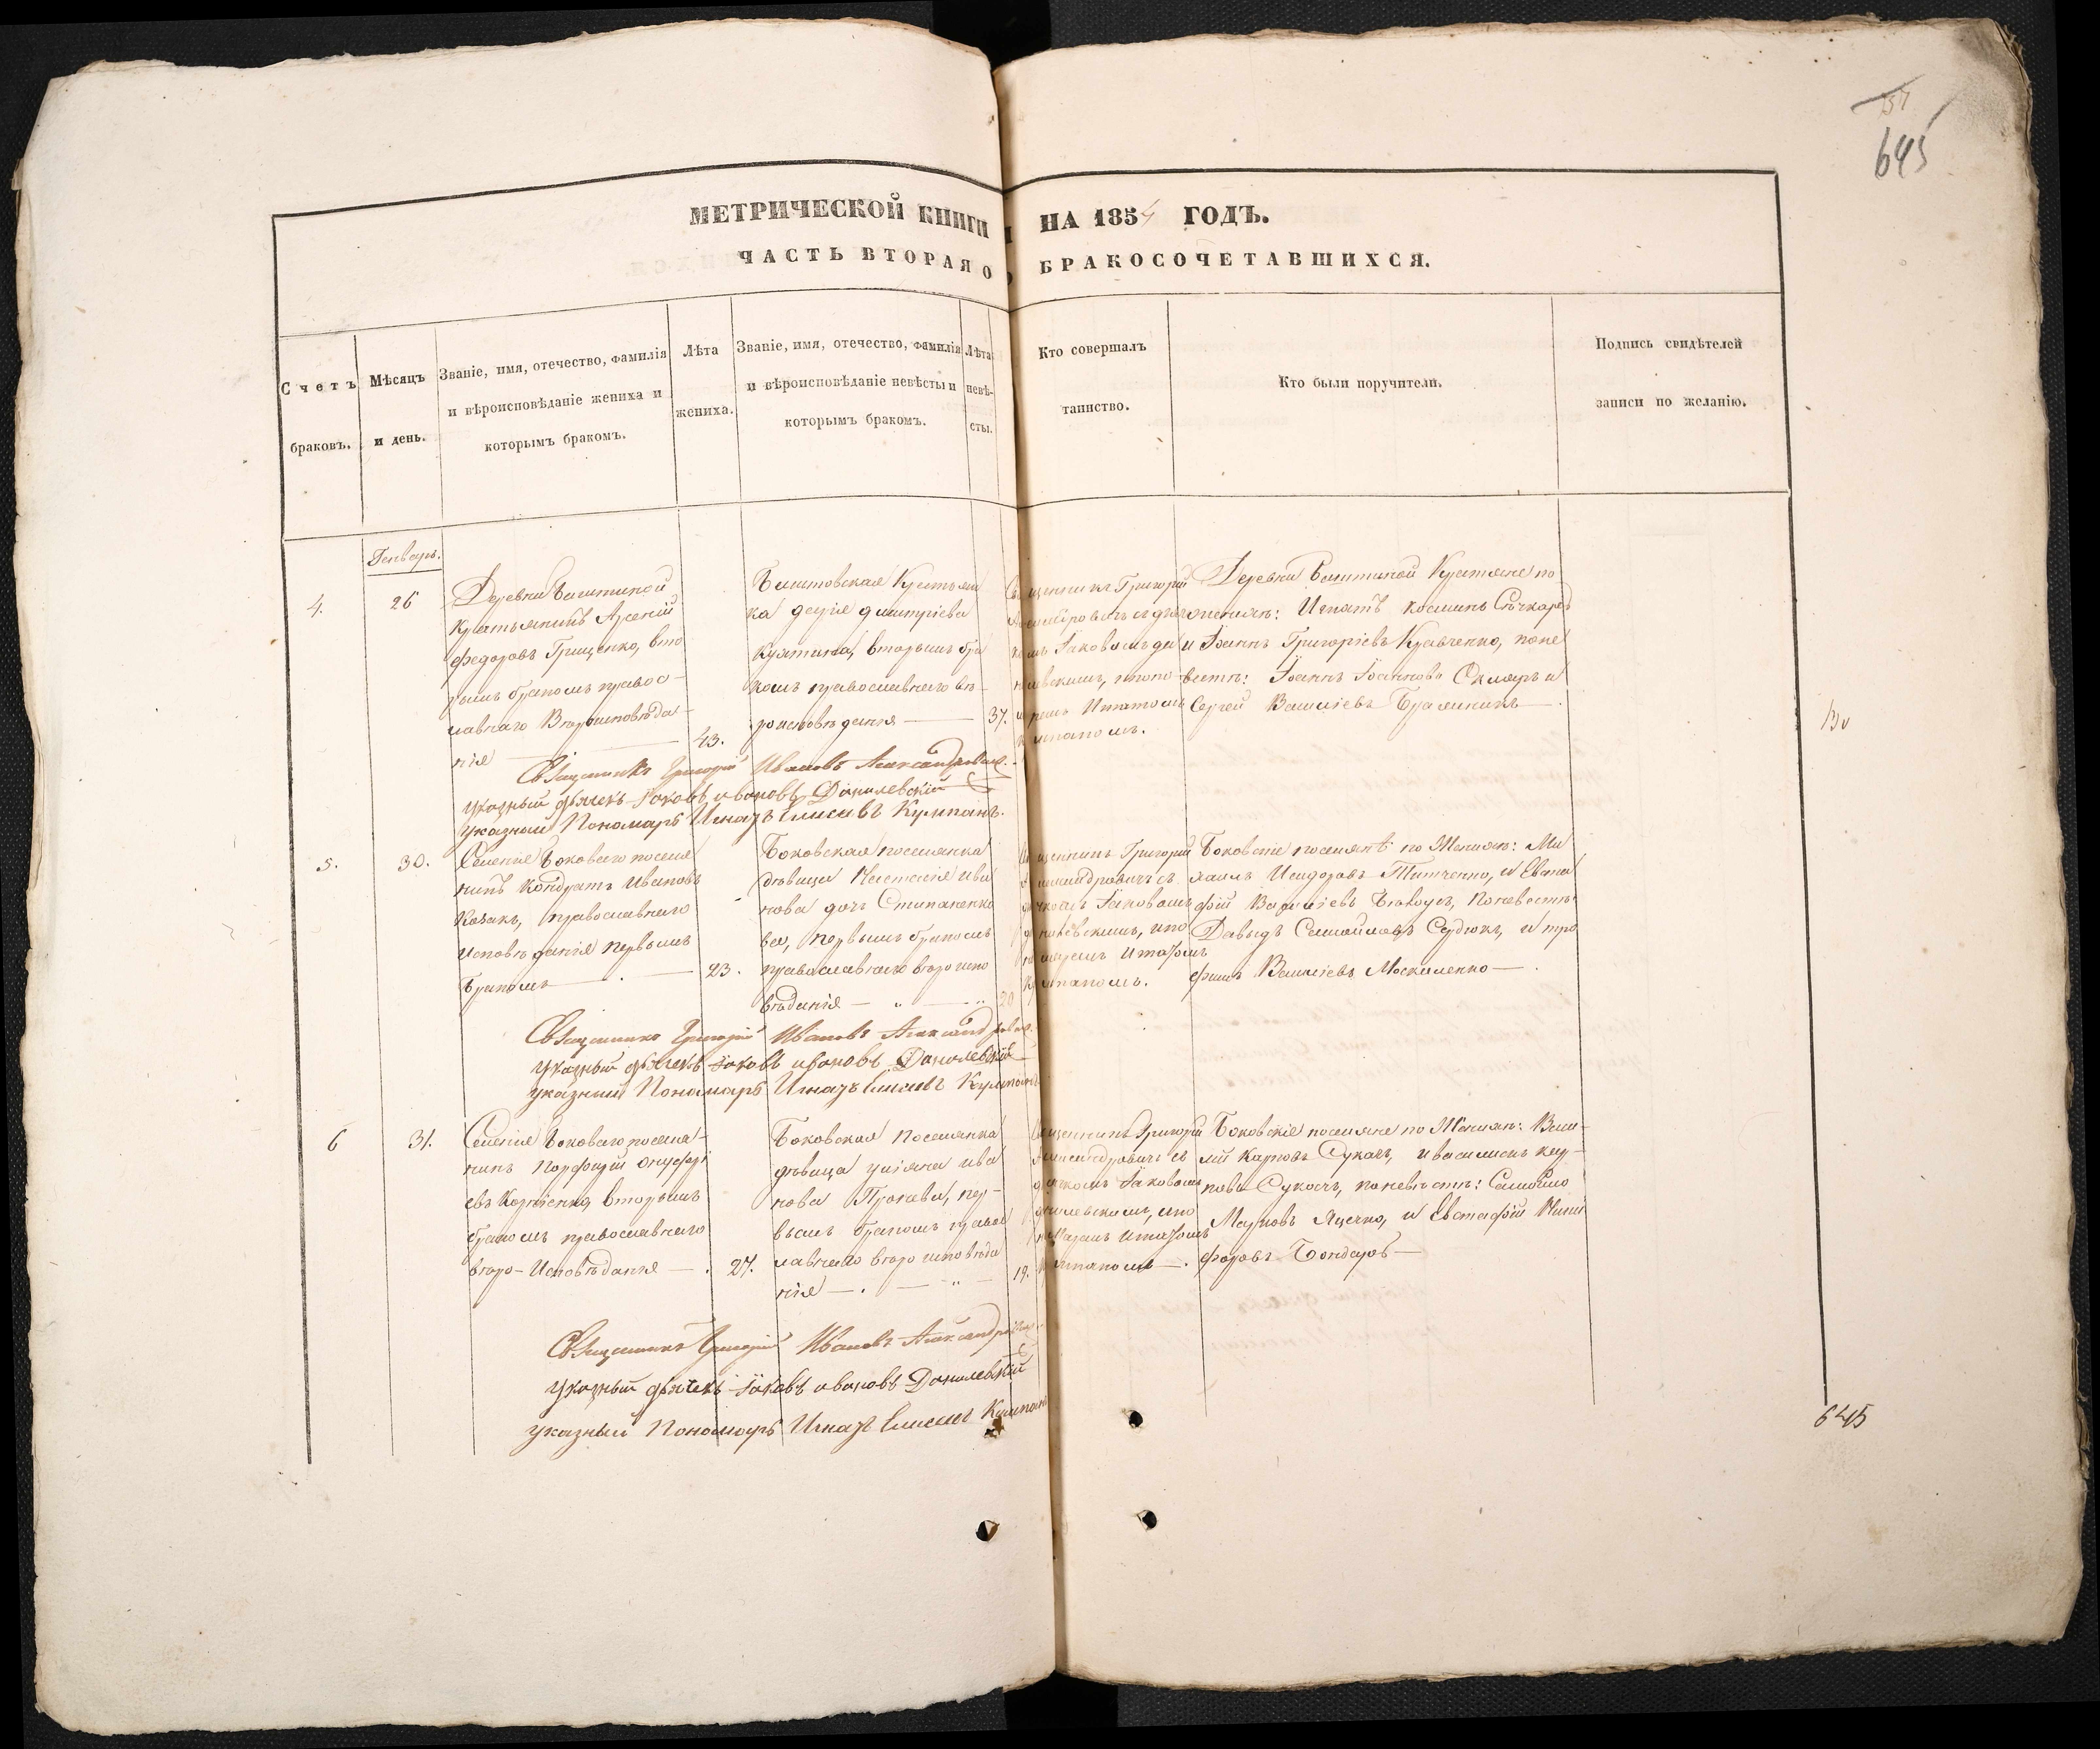 54
645
МЕТРИЧЕСКОЙ КНИГИ НА 1854 ГОДЪ.
ЧАСТЬ ВТОРАЯ О БРАКОСОЧЕТАВШИХСЯ.
Счетъ
браковъ.
Мѣсяцъ
и день.
Званіе, имя, отечество, фамилія
и вѣроисповѣданіе жениха и
которымъ бракомъ.
Лѣта
жениха.
Званіе, имя, отечество, фамилія
и вѣроисповѣданіе невѣсты и
которымъ бракомъ.
Лѣта
невѣ-
сты.
Кто совершалъ
таинство.
Кто были поручители.
Подпись свидѣтелей
записи по желанію.
Генварь.
4.
26
Деревни Баштиной
Крестьянинъ Арсеній
Федоровъ Грищенко, вто
рымъ бракомъ правос-
лавнаго Вѣроисповѣда-
нія
43.
Баштовская Крестьян
ка Дмитріева
вторымъ бра
комъ православнаго вѣ-
роисповѣданія
37.
Священникъ Григорій
Іаковомъ Да
Игнатомъ
Деревни Баштиной Крестяне по
женихѣ: Игнатъ Косминъ
и Іоаннъ Григоріевъ Кравченко, поне
вестѣ: Іоаннъ Іоанновъ Скляръ и
Сергей Василіевъ
Священникъ Григорій Ивановъ Александровичъ.
указный дьячекъ Іоковъ ивановъ Данилевскій
указный Пономарь Игнатъ Елисевъ Кумпанъ.
5.
30.
Селенія Боковаго поселя
нинъ Кондратъ Ивановъ
Козакъ, православнаго
исповѣданія первымъ
бракомъ
23.
Боковская поселянка
дѣвица Настасія ива
нова дочь Степаненко
ва, первымъ бракомъ
православнаго вѣроиспо
вѣданія
20
Священникъ Григорій
Александровичъ съ
дячкомъ Іаковомъ
Данилевскимъ, ипо
номаремъ Игнатомъ
Кумпаномъ.
Боковскіе поселянѣ по Женихѣ: Ми
хаилъ Исидоровъ Титченко, и Евста
фій Василіевъ Поневестѣ:
Давыдъ Самойловъ Сердюкъ, и тро
фимъ Василіевъ Москаленко
Священникъ Григорій Ивановъ Александровичъ.
указный дьячекъ Іоковъ ивановъ Данилевскій
указный Пономарь Игнатъ Елисевъ Кумпанъ
6
31.
Селенія Боковаго поселя-
нинъ Порфирій Онуфрі
евъ Корніенко, вторымъ
бракомъ православнаго
вѣро-Исповѣданія
27.
Боковская поселянка
дѣвица уліяна ива
нова пер-
вымъ бракомъ правос
лавнаго вѣроисповѣда
нія
19.
Священникъ Григорій
Александровичъ съ
дячкомъ Іаковомъ
Данилевскимъ, ипо
номаремъ Игнатомъ
Кумпаномъ
Боковскіе поселяне по Женихѣ: Васи-
лій Карповъ Сукачъ, и василискъ кар-
повъ Сукачъ, поневѣстѣ: Самойло
Марковъ Яценко, и Евстафій Ники
форовъ Бондарь
Священникъ Григорій Ивановъ Александровичъ.
указный дьячекъ Іоковъ ивановъ Данилевскій
указный Пономарь Игнатъ Елисевъ Кумпанъ
645